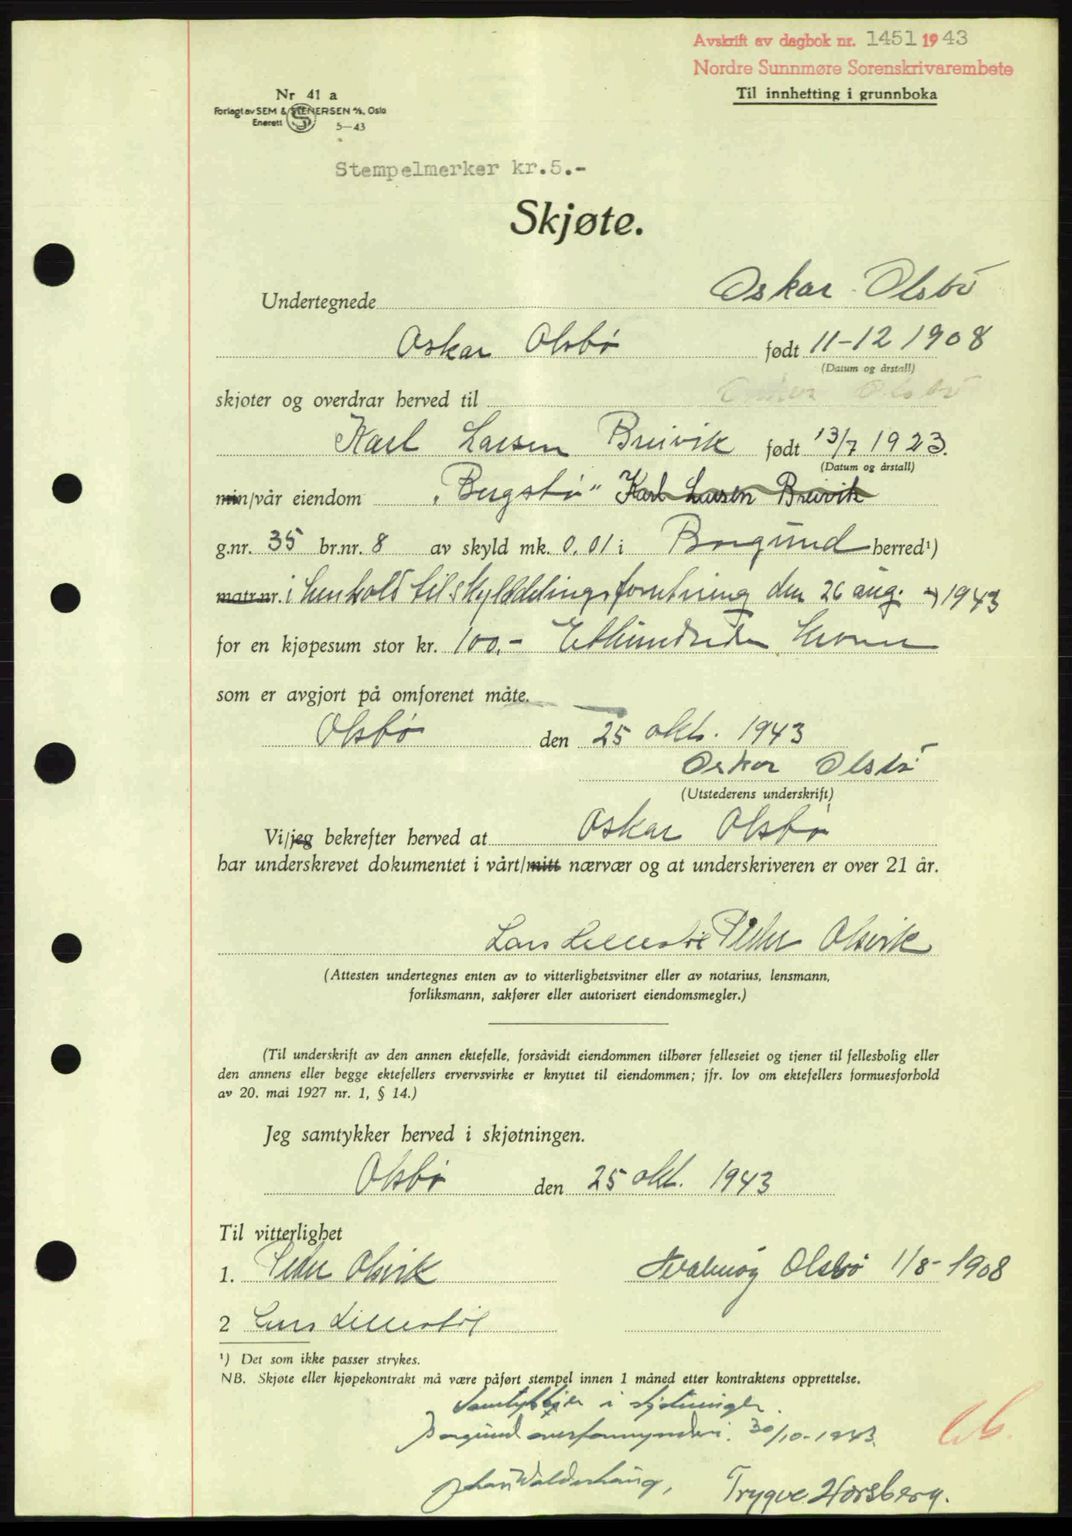 Avskrift av dagbok nr. 1451 1943
Nordre Sunnmøre Sorenskrivarembete
Til innhefting i grunnboka
Nr 41 a
Forlagt av SEM & STENERSEN A/S, Oslo
Enerett 5-43
Stempelmerker kr.5.-
Skjøte.
Undertegnede Oskar Olsbø
Oskar Olsbø født 11-12 1908
(Datum og årstall)
skjøter og overdrar herved til Oskar Olsbø
Karl Larsen Breivik født 13/7 1923.
(Datum og årstall)
min/vår eiendom „Bergsbø" Karl Larsen Breivik
g.nr. 35 br.nr. 8 av skyld mk. 0.01 i Borgund herred¹)
matr.nr. i henhold til skylddelingsforretning den 26 aug. 1943
for en kjøpesum stor kr. 100.- Ethundrede kroner
som er avgjort på omforenet måte.
Olsbø den 25 okt. 1943
Oskar Olsbø
(Utstederens underskrift)
Vi/jeg bekrefter herved at Oskar Olsbø
har underskrevet dokumentet i vårt/mitt nærvær og at underskriveren er over 21 år.
Lars Lillestøl Peder Olsvik
(Attesten undertegnes enten av to vitterlighetsvitner eller av notarius, lensmann,
forliksmann, sakfører eller autorisert eiendomsmegler.)
(Til underskrift av den annen ektefelle, forsåvidt eiendommen tilhører felleseiet og tjener til fellesbolig eller
den annens eller begge ektefellers ervervsvirke er knyttet til eiendommen; jfr. lov om ektefellers formuesforhold
av 20. mai 1927 nr. 1, § 14.)
Jeg samtykker herved i skjøtningen.
Olsbø den 25 okt. 1943
Til vitterlighet
1. Peder Olsvik Olsbø 1/8-1908
2 Lars Lillestøl
¹) Det som ikke passer strykes.
NB. Skjøte eller kjøpekontrakt må være påført stempel innen 1 måned etter kontraktens opprettelse.
Samtykkjer i skjøtningen.
Borgund overformynderi 30/10-1943
Johan Walderhaug, Trygve Norsberg.